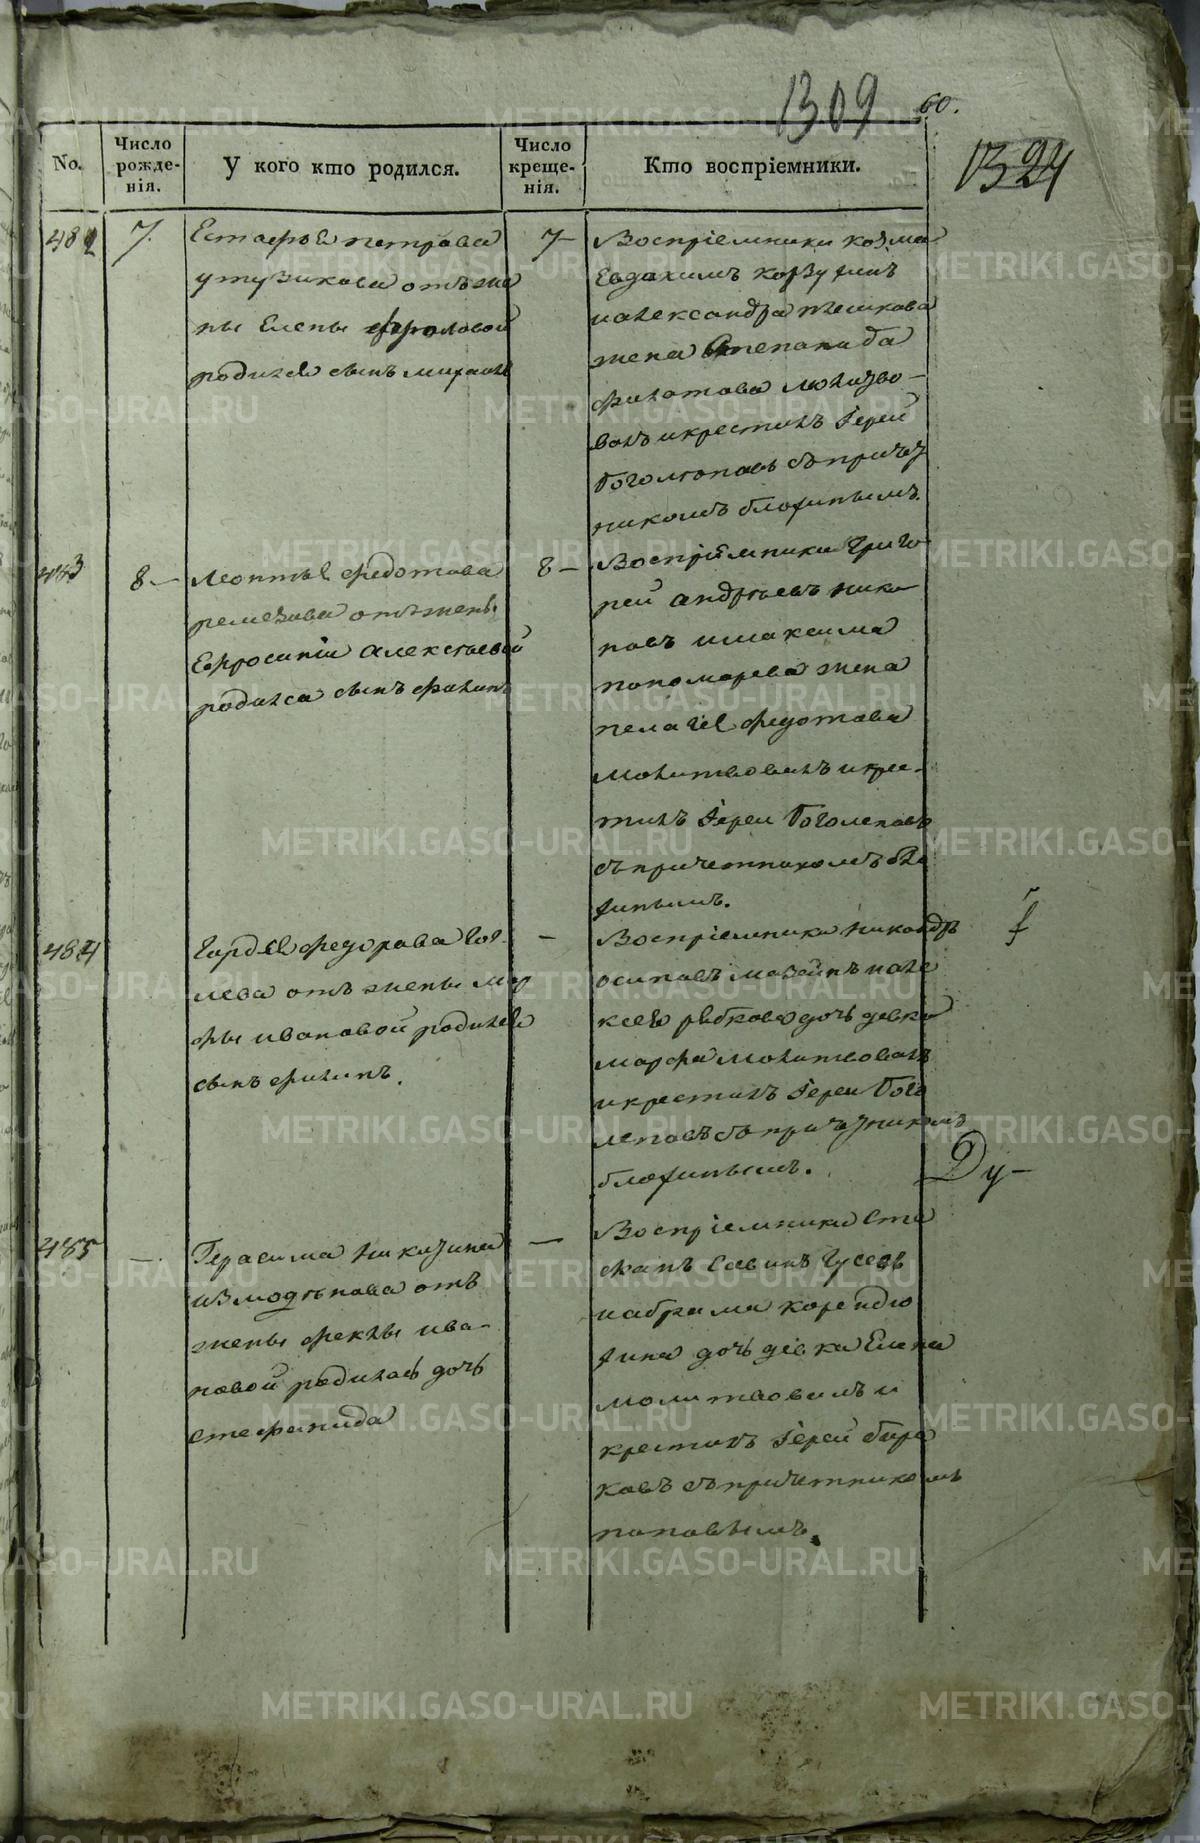 1309
60.
1324
No.
Число рожде-нія.
У кого кто родился.
Число креще-нія.
Кто воспріемники.
482
7.
Естафья петрова
утузикова отъ же
ны Елены фроловой
родился сынъ михаилъ
7-
Воспріемники козма
Евдокимъ
иалександра пешкова
жена Степанида
филатова молитво-
валъ икрестилъ Іерей
Боголеповъ съ причет
никомъ блохинымъ.
483
8-
Леонтья федотова
ремезова отъ жены
Ефросиніи Алексѣевой
родился сынъ филипъ
8-
Воспріемники Григо
рей андрѣевъ
повъ имаксима
пономарева жена
пелагея федотова
молитвовалъ икрес-
тилъ Іереи Боголеповъ
съпричетникомъ бло
хинымъ.
484
гордѣя федорова гог-
лева отъ жены мар
фы ивановой родился
сынъ филипъ.
-
Воспріемники никандръ
осиповъ иале
ксея рыбкова дочь девка
марфа молитвовалъ
икрестилъ Іереи Бого
леповъ съ причетникомъ
блохинымъ.
Ду-
485
-.
Герасима никитина
измодѣнова отъ
жены феклы ива-
новой родилась дочь
стефанида
-
Воспріемники сте
фанъ Савинъ Гусевъ
иабрама корендю
хина дочь дѣвка Елена
молитвовалъ и
крестилъ Іерей бирю
ковъ съпричетникомъ
поповымъ.
METRIKI.GASO-URAL.RU